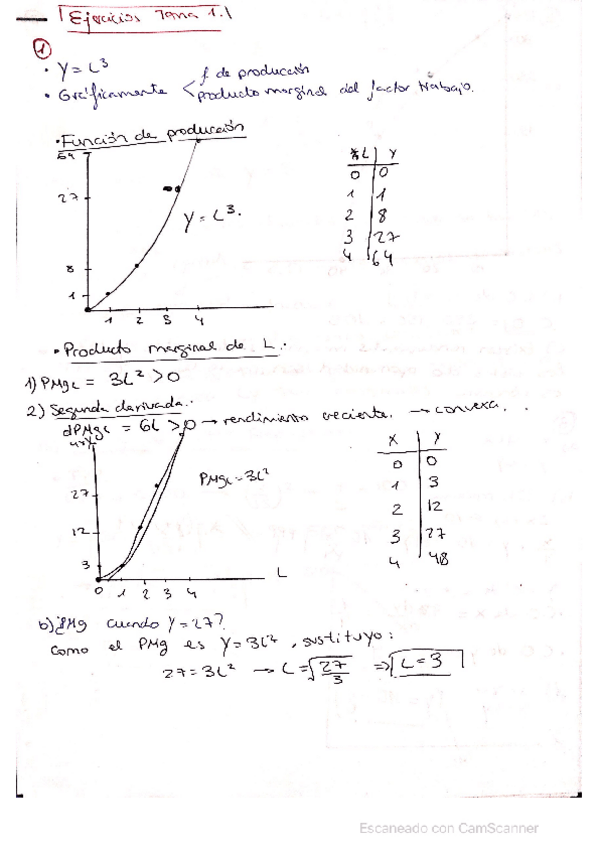 Ejercicios Tema 1.
1
• Y = L³
• Gráficamente < f de producción
producto marginal del factor trabajo.
• Función de producción
64
27
8
1
1 2 3 4
Y = L³.
L Y
0 0
1 1
2 8
3 27
4 64
• Producto marginal de L.
1) PMgL = 3L² > 0
2) Segunda derivada.
dPMgL = 6L > 0 → rendimiento creciente. → convexa.
27
12
3
0 1 2 3 4
L
PMgL = 3L²
X Y
0 0
1 3
2 12
3 27
4 48
b) ¿PMg cuando Y = 27?
Como el PMg es Y = 3L², sustituyo:
27 = 3L² → L = √27/3 ⇒ L = 3
Escaneado con CamScanner